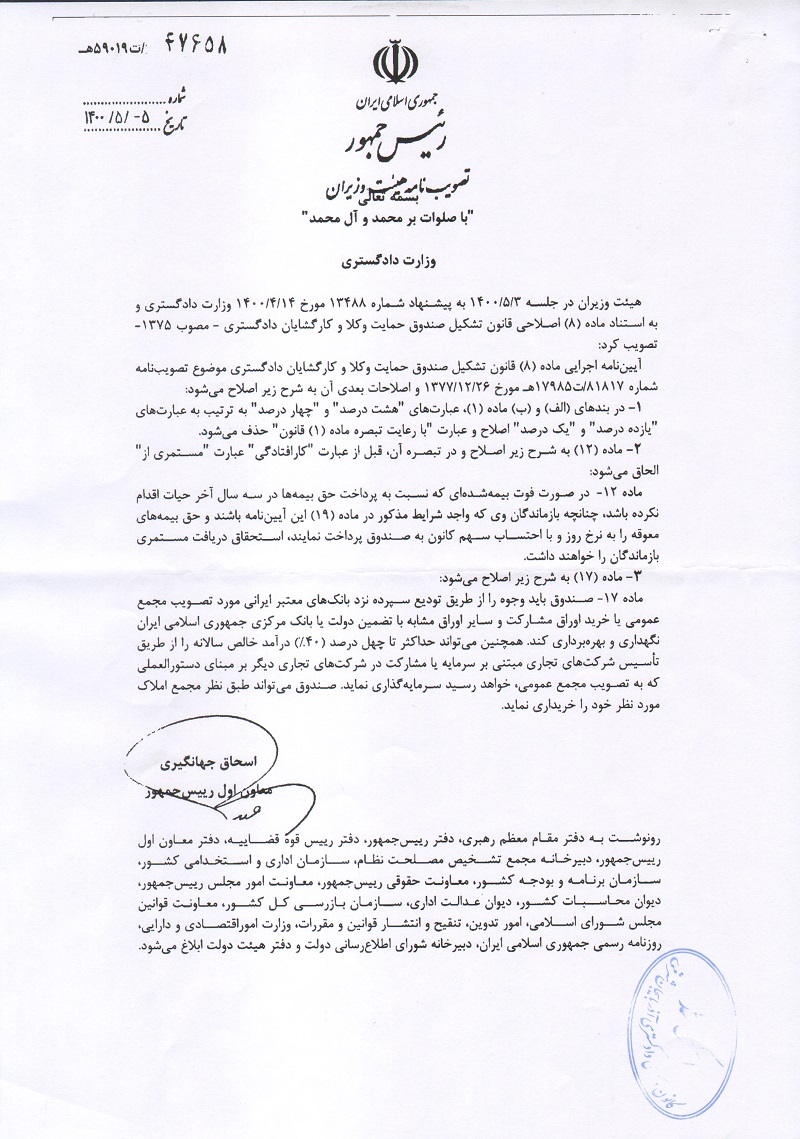 ۴۷۶۵۸/ت۵۹۰۱۹هـ
جمهوری اسلامی ایران
رئیس جمهور
شماره
تاریخ ۱۴۰۰/۵/۰۵
تصویب نامه هیئت وزیران
بسمه تعالی
"با صلوات بر محمد و آل محمد"
وزارت دادگستری
هیئت وزیران در جلسه ۱۴۰۰/۵/۳ به پیشنهاد شماره ۱۳۴۸۸ مورخ ۱۴۰۰/۴/۱۴ وزارت دادگستری و
به استناد ماده (۸) اصلاحی قانون تشکیل صندوق حمایت وکلا و کارگشایان دادگستری - مصوب ۱۳۷۵-
تصویب کرد:
آیین‌نامه اجرایی ماده (۸) قانون تشکیل صندوق حمایت وکلا و کارگشایان دادگستری موضوع تصویب‌نامه
شماره ۸۱۸۱۷/ت۱۷۹۸۵هـ مورخ ۱۳۷۷/۱۲/۲۶ و اصلاحات بعدی آن به شرح زیر اصلاح می‌شود:
۱- در بندهای (الف) و (ب) ماده (۱)، عبارت‌های "هشت درصد" و "چهار درصد" به ترتیب به عبارت‌های
"یازده درصد" و "یک درصد" اصلاح و عبارت "با رعایت تبصره ماده (۱) قانون" حذف می‌شود.
۲- ماده (۱۲) به شرح زیر اصلاح و در تبصره آن، قبل از عبارت "کارافتادگی" عبارت "مستمری از"
الحاق می‌شود:
ماده ۱۲- در صورت فوت بیمه‌شده‌ای که نسبت به پرداخت حق بیمه‌ها در سه سال آخر حیات اقدام
نکرده باشد، چنانچه بازماندگان وی که واجد شرایط مذکور در ماده (۱۹) این آیین‌نامه باشند و حق بیمه‌های
معوقه را به نرخ روز و با احتساب سهم کانون به صندوق پرداخت نمایند، استحقاق دریافت مستمری
بازماندگان را خواهند داشت.
۳- ماده (۱۷) به شرح زیر اصلاح می‌شود:
ماده ۱۷- صندوق باید وجوه را از طریق تودیع سپرده نزد بانک‌های معتبر ایرانی مورد تصویب مجمع
عمومی یا خرید اوراق مشارکت و سایر اوراق مشابه با تضمین دولت یا بانک مرکزی جمهوری اسلامی ایران
نگهداری و بهره‌برداری کند. همچنین می‌تواند حداکثر تا چهل درصد (۴۰٪) درآمد خالص سالانه را از طریق
تأسیس شرکت‌های تجاری مبتنی بر سرمایه یا مشارکت در شرکت‌های تجاری دیگر بر مبنای دستورالعملی
که به تصویب مجمع عمومی، خواهد رسید سرمایه‌گذاری نماید. صندوق می‌تواند طبق نظر مجمع املاک
مورد نظر خود را خریداری نماید.
اسحاق جهانگیری
معاون اول رییس‌جمهور
رونوشت به دفتر مقام معظم رهبری، دفتر رییس‌جمهور، دفتر رییس قوه قضاییه، دفتر معاون اول
رییس‌جمهور، دبیرخانه مجمع تشخیص مصلحت نظام، سازمان اداری و استخدامی کشور،
سازمان برنامه و بودجه کشور، معاونت حقوقی رییس‌جمهور، معاونت امور مجلس رییس‌جمهور،
دیوان محاسبات کشور، دیوان عدالت اداری، سازمان بازرسی کل کشور، معاونت قوانین
مجلس شورای اسلامی، امور تدوین، تنقیح و انتشار قوانین و مقررات، وزارت اموراقتصادی و دارایی،
روزنامه رسمی جمهوری اسلامی ایران، دبیرخانه شورای اطلاع‌رسانی دولت و دفتر هیئت دولت ابلاغ می‌شود.